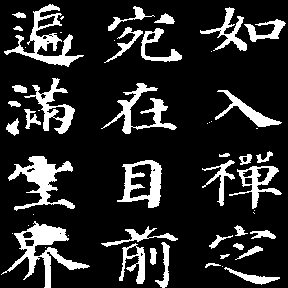 如入禪定
宛在目前
遍滿空界